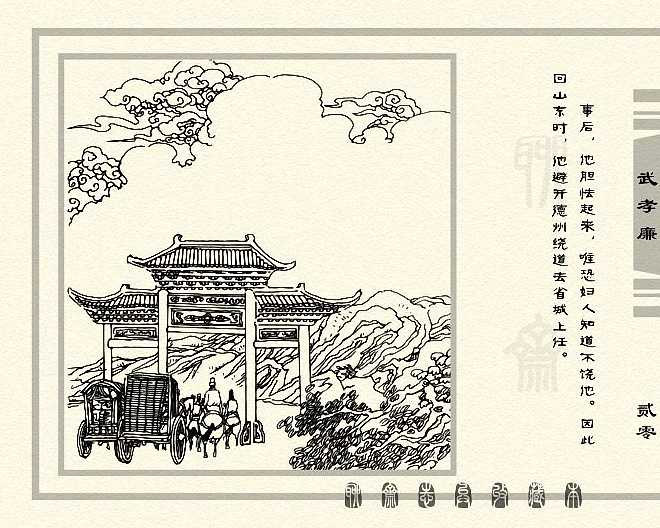 事后，他胆怯起来，唯恐妇人知道不饶他。因此
回山东时，他避开德州绕道去省城上任。
武孝廉
贰零
聊斋志异收藏本